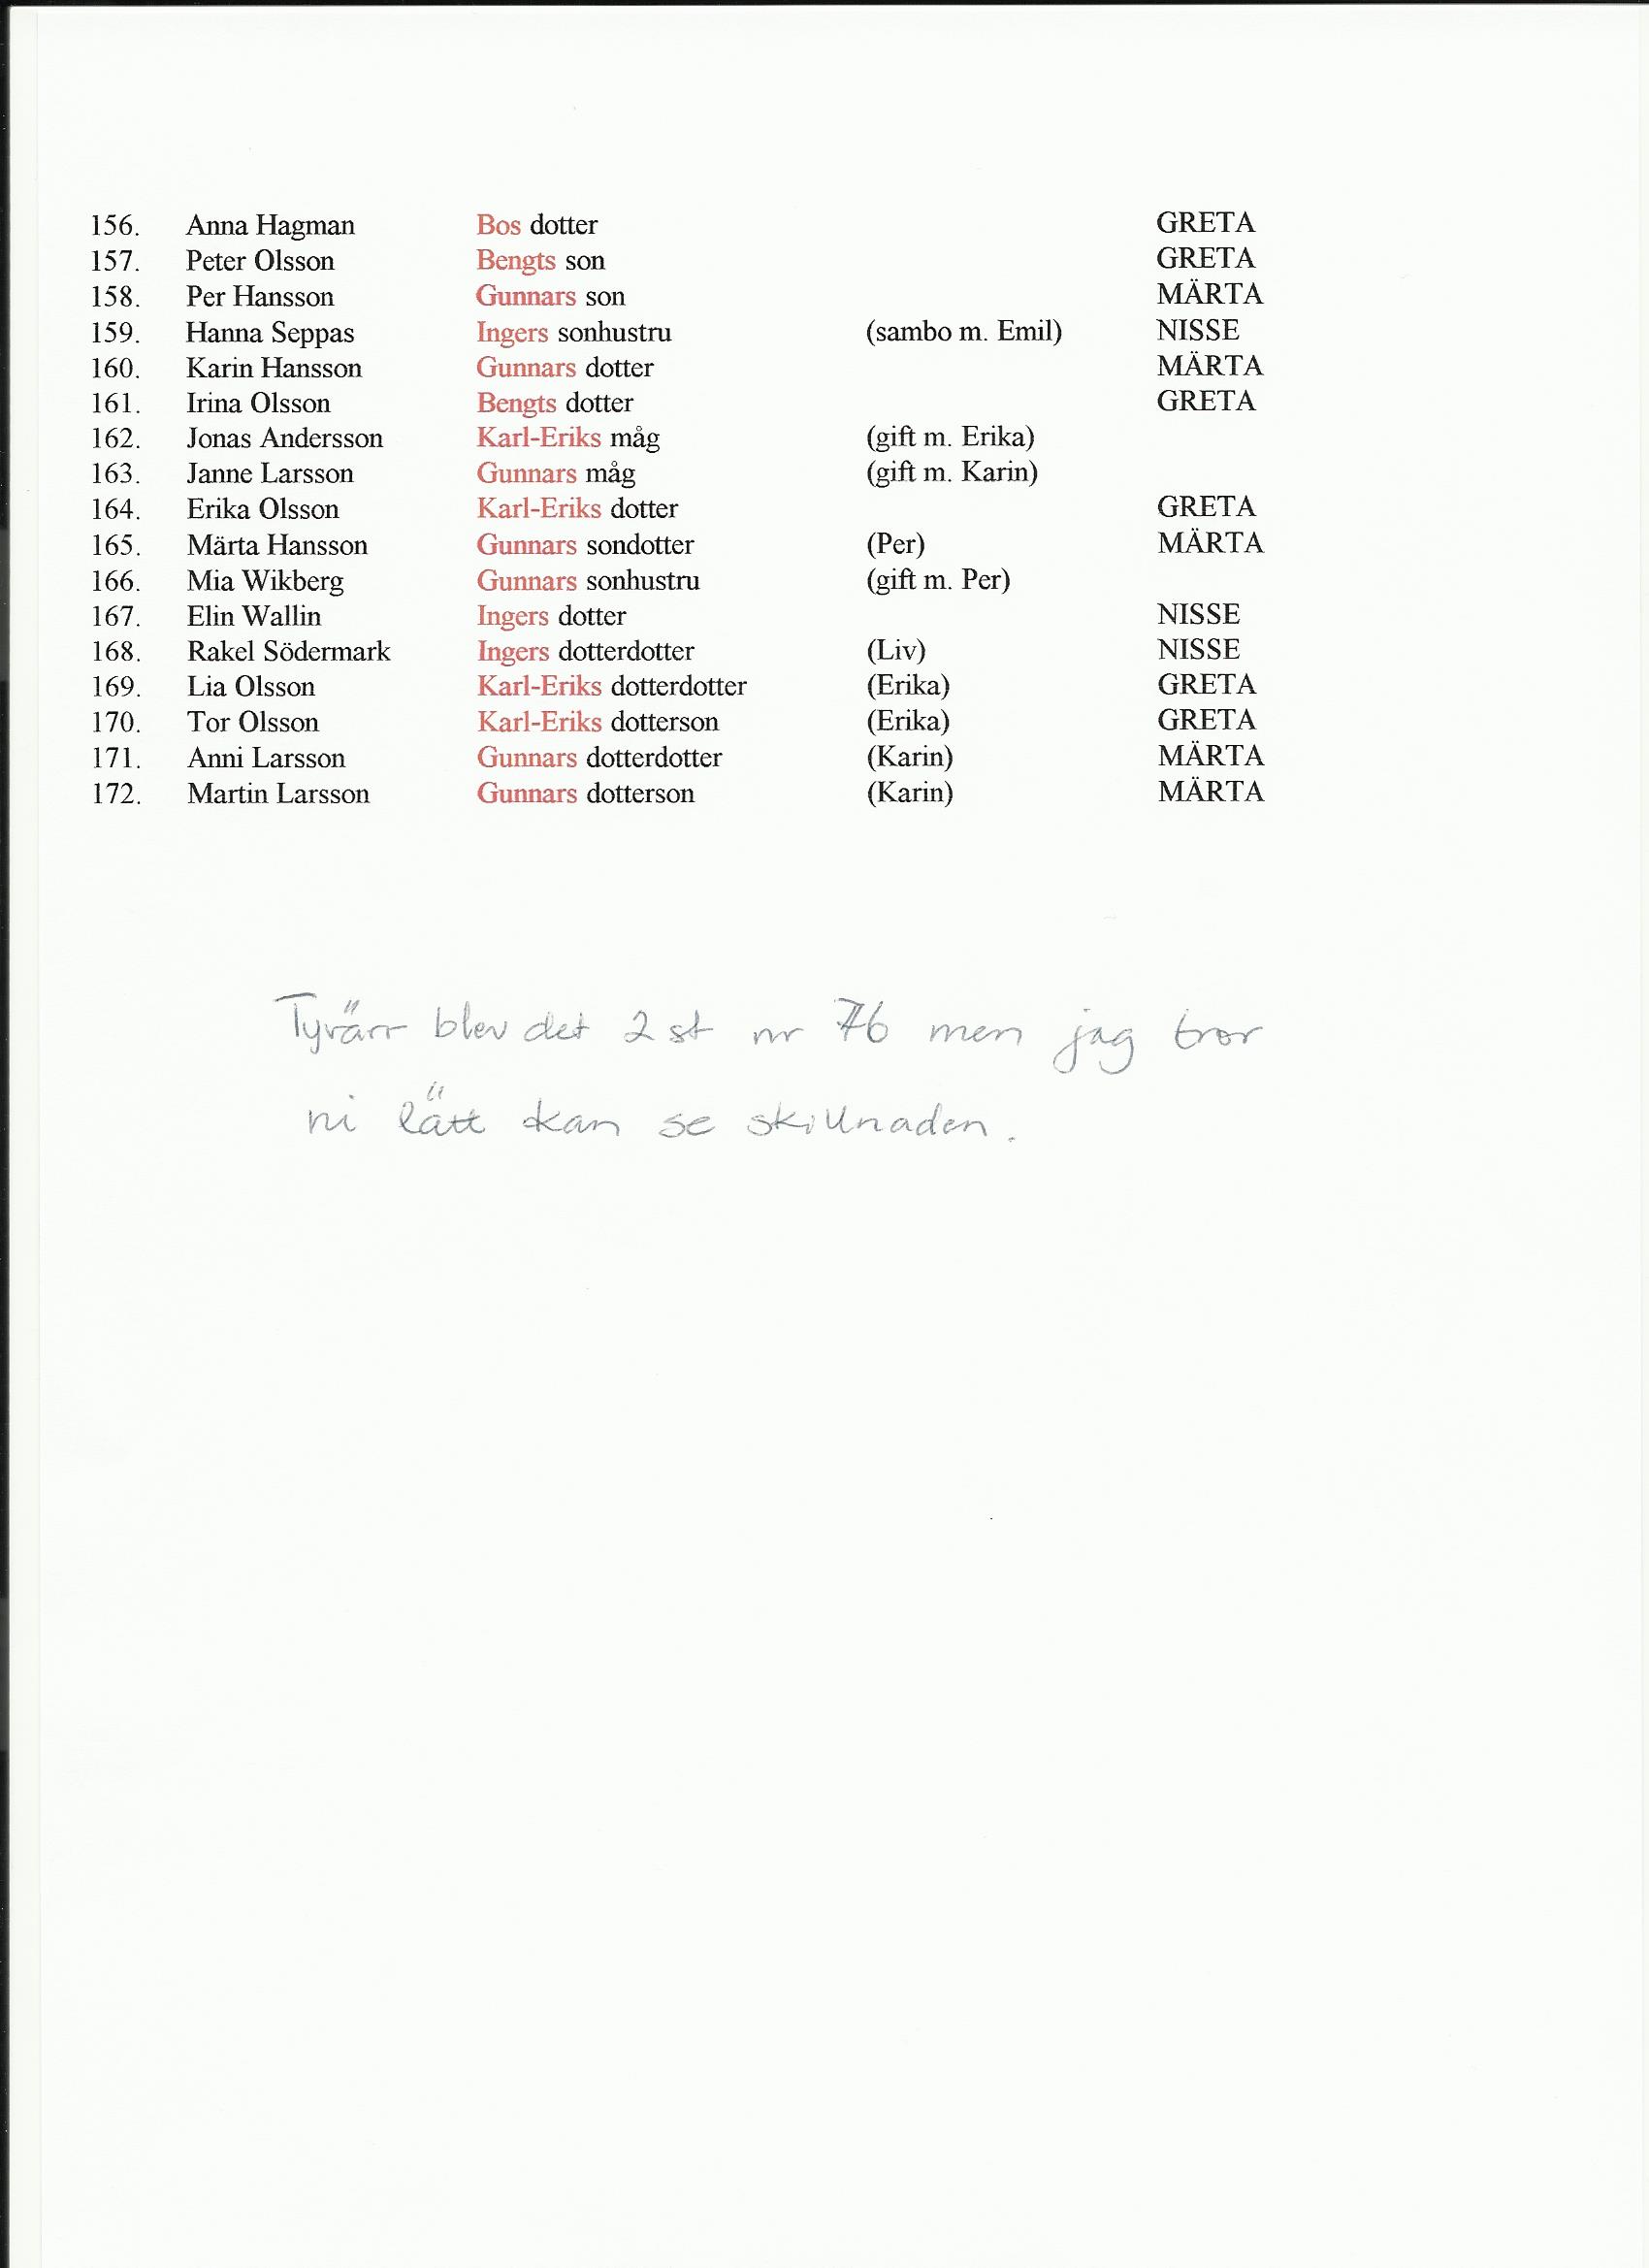 156. Anna Hagman Bos dotter GRETA
157. Peter Olsson Bengts son GRETA
158. Per Hansson Gunnars son MÄRTA
159. Hanna Seppas Ingers sonhustru (sambo m. Emil) NISSE
160. Karin Hansson Gunnars dotter MÄRTA
161. Irina Olsson Bengts dotter GRETA
162. Jonas Andersson Karl-Eriks måg (gift m. Erika)
163. Janne Larsson Gunnars måg (gift m. Karin)
164. Erika Olsson Karl-Eriks dotter GRETA
165. Märta Hansson Gunnars sondotter (Per) MÄRTA
166. Mia Wikberg Gunnars sonhustru (gift m. Per)
167. Elin Wallin Ingers dotter NISSE
168. Rakel Södermark Ingers dotterdotter (Liv) NISSE
169. Lia Olsson Karl-Eriks dotterdotter (Erika) GRETA
170. Tor Olsson Karl-Eriks dotterson (Erika) GRETA
171. Anni Larsson Gunnars dotterdotter (Karin) MÄRTA
172. Martin Larsson Gunnars dotterson (Karin) MÄRTA
Tyvärr blev det 2 st nr 76 men jag tror
ni lätt kan se skillnaden.